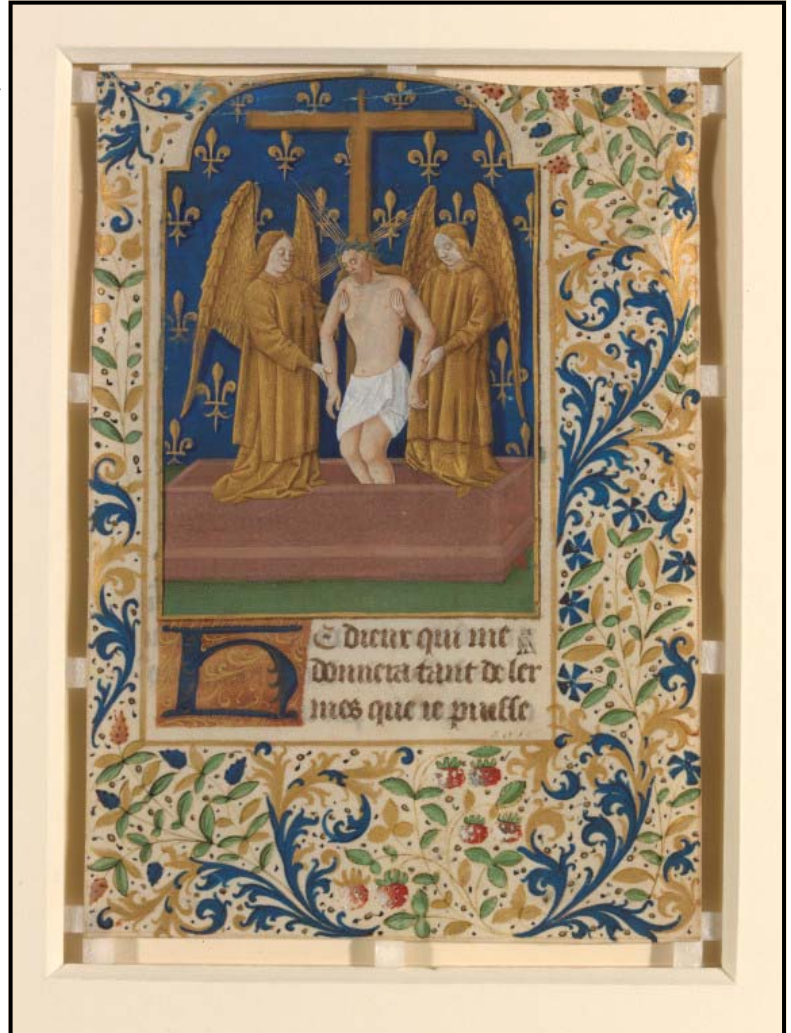 HE dieux qui me
donnera tant de ler
mes que ie puisse